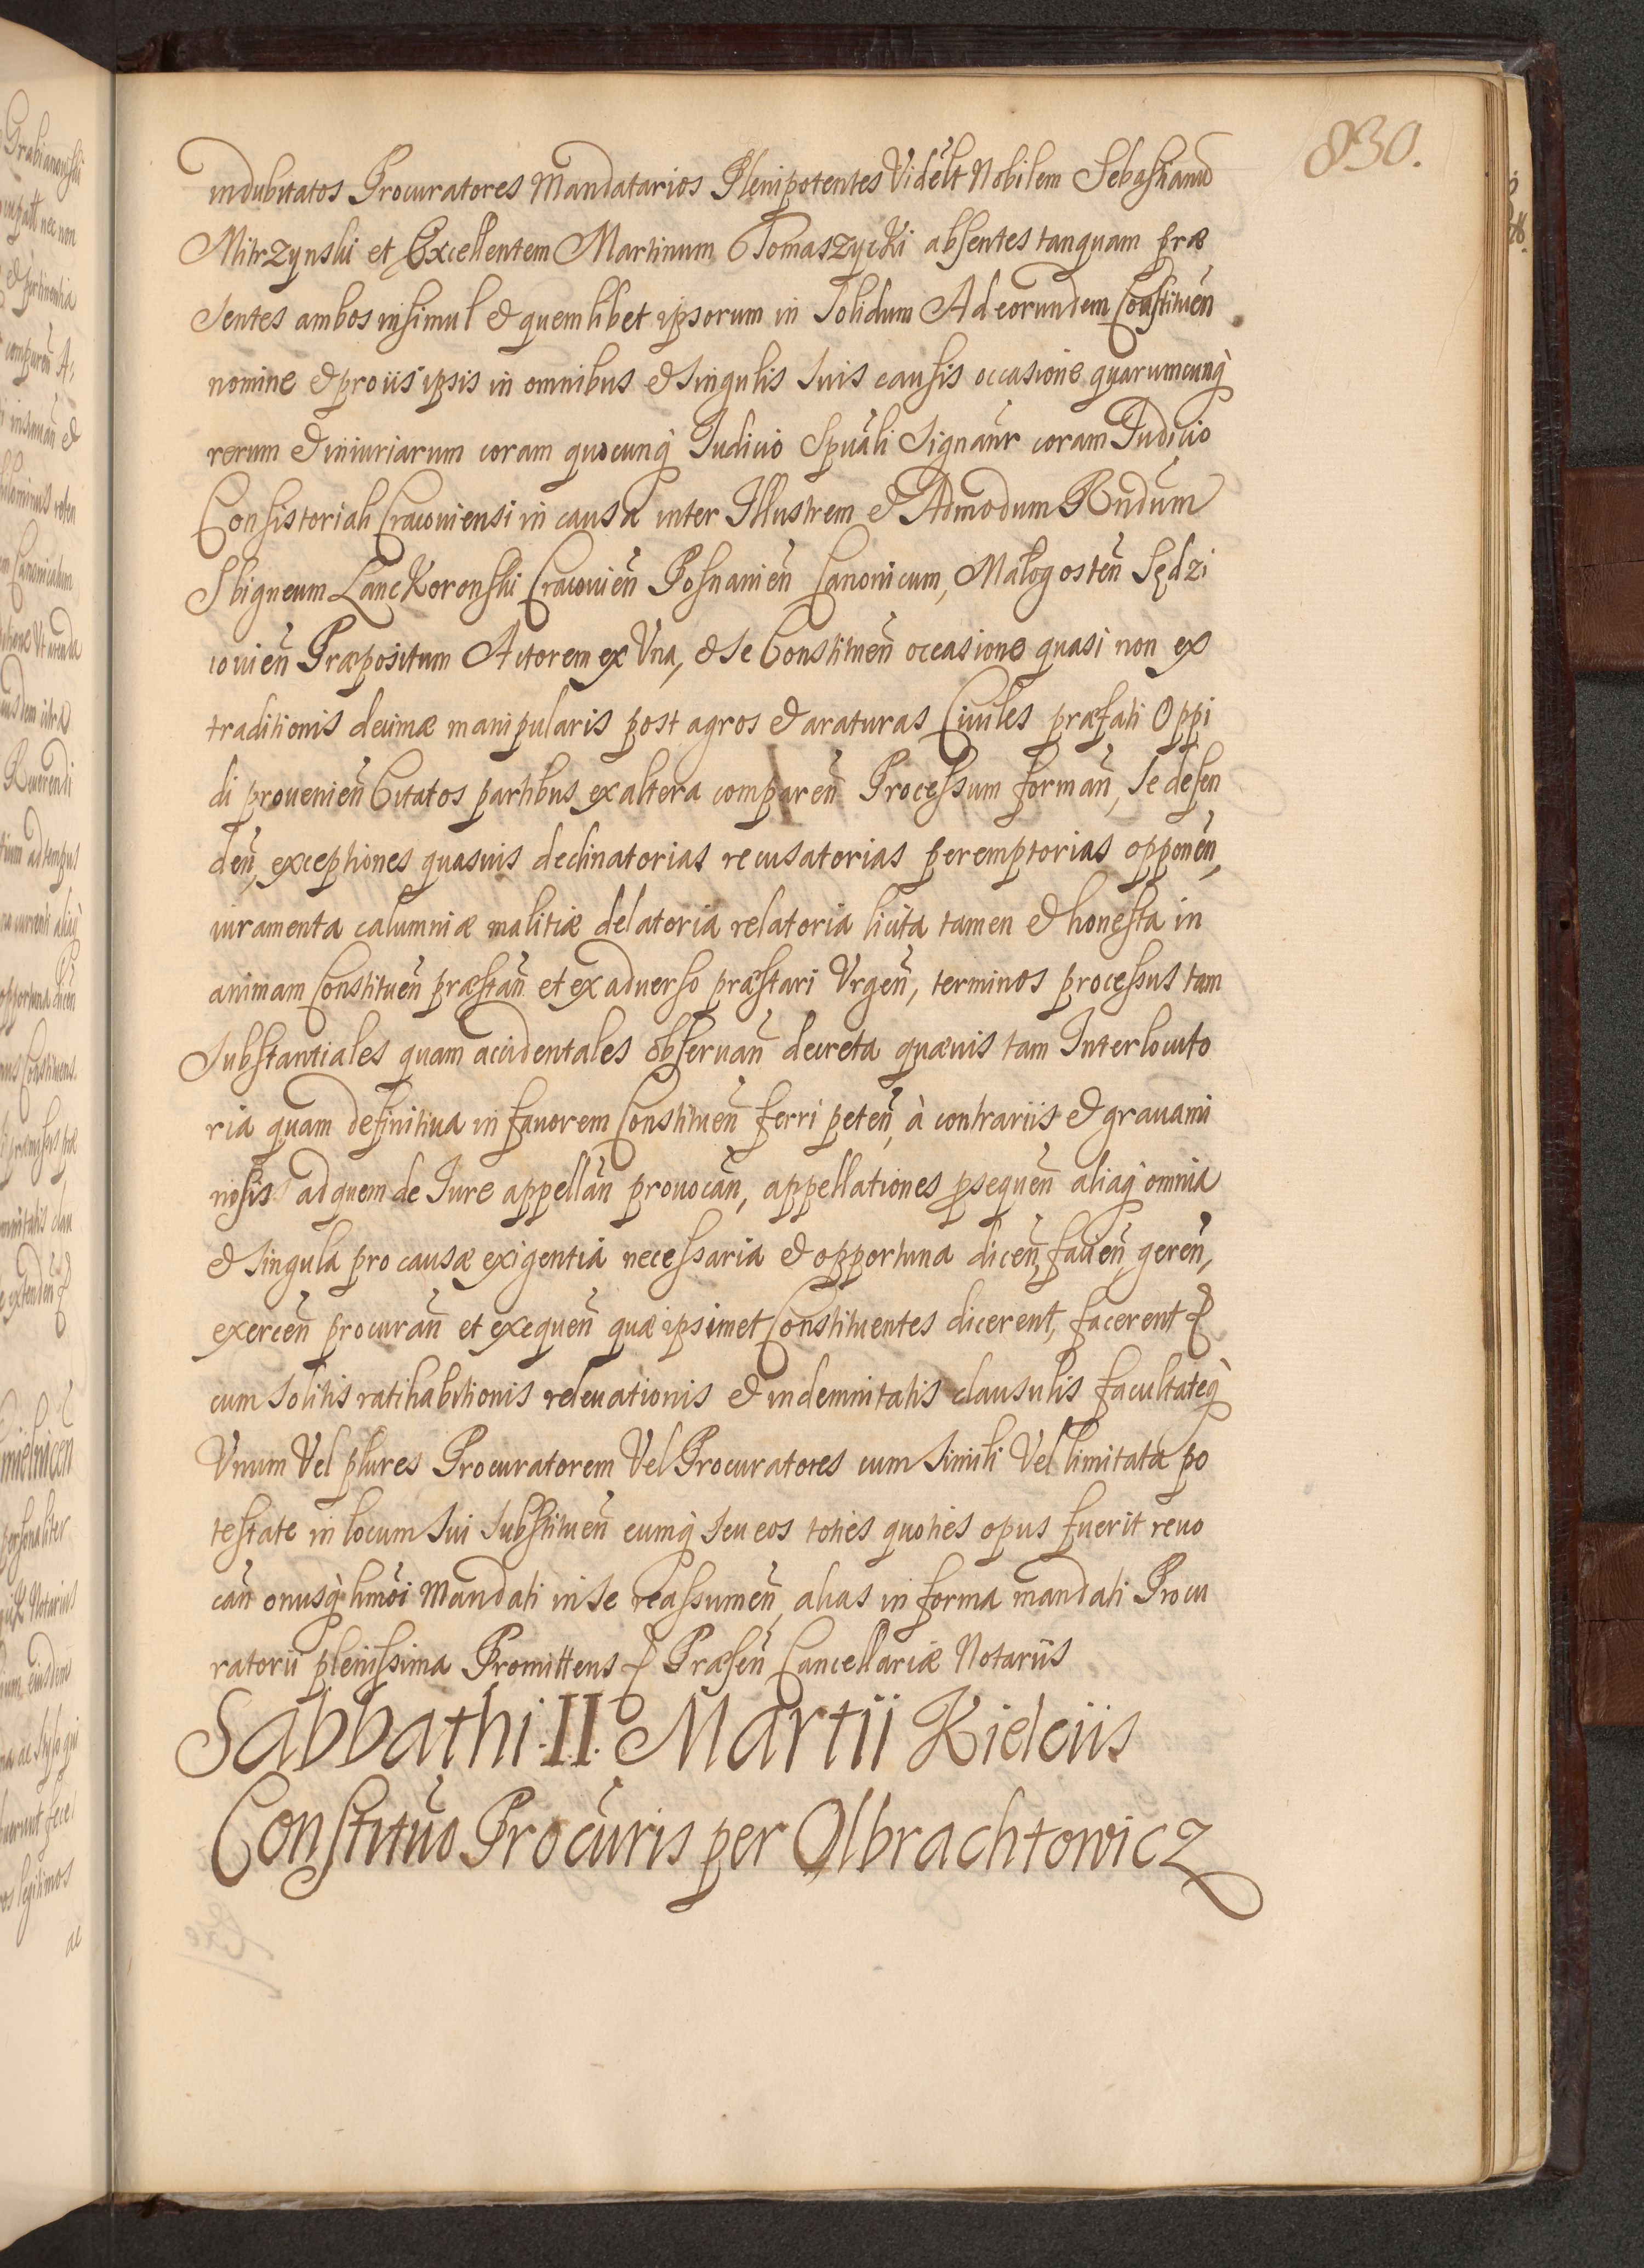 830.
indubitatos Procuratores Mandatarios Plenipotentes Videlt Nobilem Sebastianu
Mitrzynski et Excellentem Martinum Tomaszycki absentes tanquam præ
sentes ambos insimul & quemlibet ipsorum in solidum Ad eorundem Constituen̄
nomine & pro iis ipsis in omnibus & singulis suis causis occasione quarumcunq̀
rerum & iniuriarum coram quocunq̀ Judicio Spuāli signanr̄ coram Judicio
Consistoriali Cracoviensi in causa inter Illustrem & Admodum Rndum
Sbigneum Lanckoronski Cracouien̄ Posnanien̄ Canonicum, Małogosten̄ Sędzi
iouien̄ Præpositum Actorem ex Vna, & se Constituen̄ occasione quasi non ex
traditionis decimæ manipularis post agros & araturas Ciuiles præfati Oppi
di prouenien̄ Citatos partibus ex altera comparen̄ Processum forman̄, se defen
den̄, exceptiones quasuis declinatorias recusatorias peremptorias opponen̄,
iuramenta calumniæ malitiæ delatoria relatoria licita tamen & honesta in
animam Constituen̄ præstan̄ et ex aduerso præstari Vrgen̄, terminos processus tam
substantiales quam accidentales obseruan̄ decreta quæuis tam Interlocuto
ria quam definitiua in fauorem Constituen̄ ferri peten̄, à contrariis & grauami
nosis ad quem de Iure appellan̄ prouocan̄, appellationes psequen̄ aliaq̀ omnia
& singula pro causæ exigentia necessaria & opportuna dicen̄, facien̄, geren̄,
exercen̄ procuran̄ et exequen̄ quæ ipsimet Constituentes dicerent, facerent &
cum solitis ratihabitionis releuationis & indemnitatis clausulis facultateq̀
Vnum Vel plures Procuratorem Vel Procuratores cum simili Vel limitata po
testate in locum sui substituen̄ eumq̀ seu eos toties quoties opus fuerit reuo
can̄ onusq̀ hmōi Mandati in se reassumen̄, alias in forma mandati Procu
ratorii plenissima Promittens & Præsen̄ Cancellariæ Notariis
Sabbathi II Martii Kielciis
Constituō Procuris per Olbrachtowicz